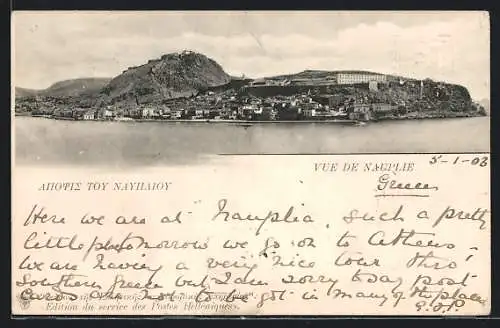 ΑΠΟΨΙΣ ΤΟΥ ΝΑΥΠΛΙΟΥ
VUE DE NAUPLIE
5-1-03
Greece
Here we are at Nauplia, such a pretty
little place tomorrow we go on to Athens -
We are having a very nice tour thro'
Southern Greece but I am sorry to say post
cards are not to be got in many of the places
Edition du service des Postes Helléniques.